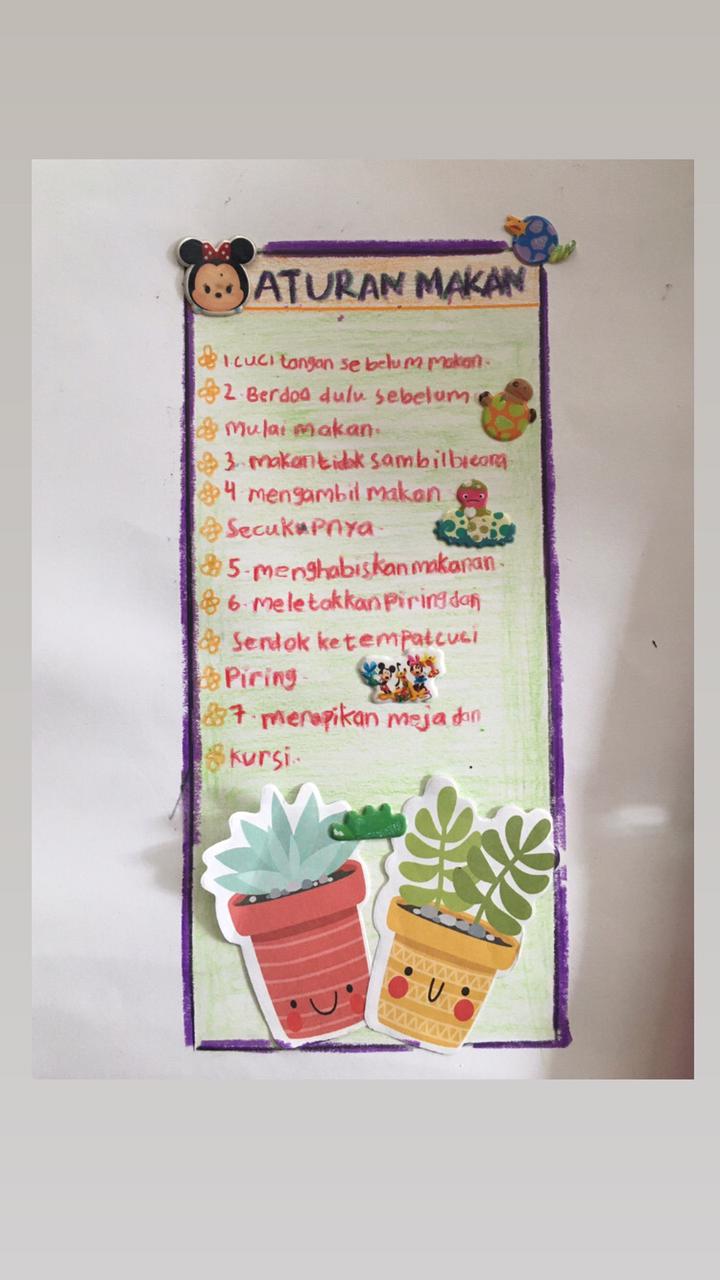 ATURAN MAKAN
1. cuci tangan sebelum makan.
2. Berdoa dulu sebelum
Mulai makan.
3. makan tidak sambil bicara
4 mengambil makan
Secukupnya.
5. menghabiskan makanan.
6. meletakkan piring dan
Sendok ke tempat cuci
Piring.
7. merapikan meja dan
kursi.